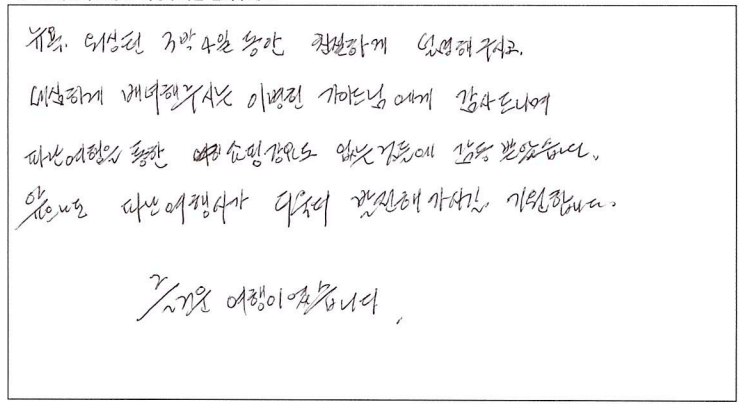 뉴욕. 워싱턴 3박4일 동안 친절하게 설명해주시고.
세심하게 배려해주시는 이병헌 가이드님에게 감사드리며
파란여행을 통한 쇼핑강요도 없는것들에 감동 받았습니다.
앞으로도 파란여행사가 더욱더 발전해 가시길 기원합니다.
즐거운 여행이었습니다.